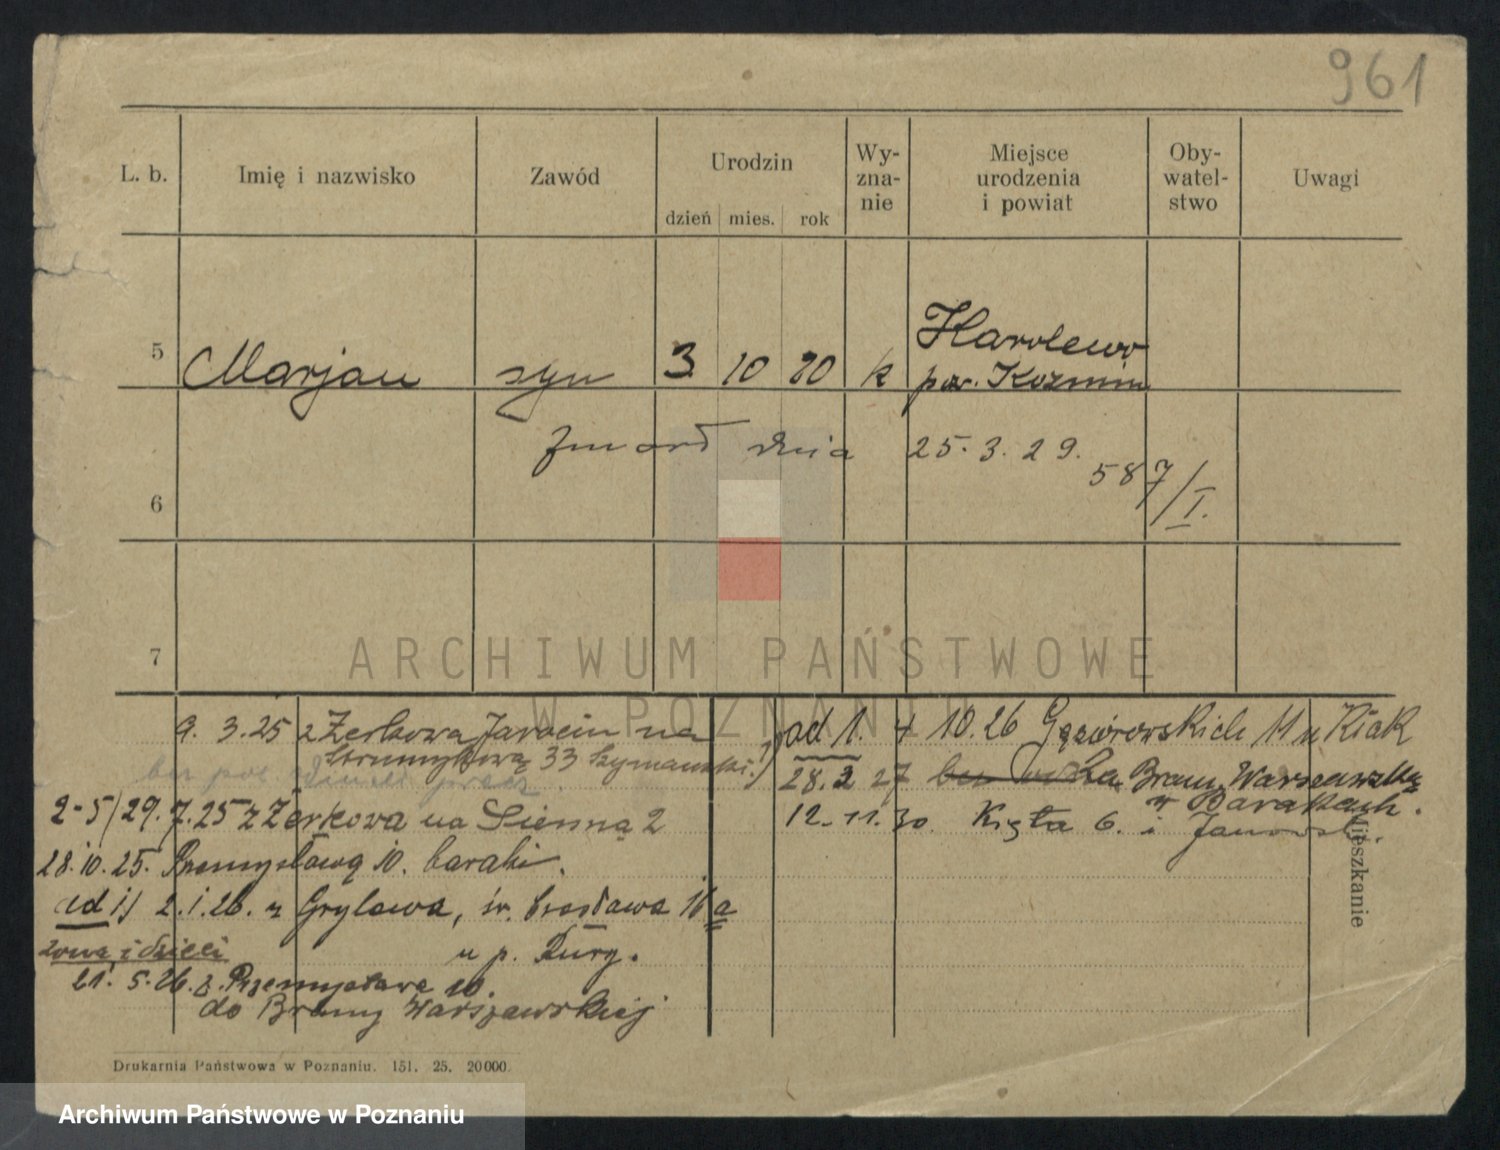 961
L. b. Imię i nazwisko Zawód Urodzin Wy-zna-nie Miejsce urodzenia i powiat Oby-watel-stwo Uwagi
dzień mies. rok
5 Marjan syn 3. 10 20 k Karolewo
pow. Kozmin
zmarł dnia 25.3.29.
587/I.
6
7
ARCHIWUM PAŃSTWOWE
W POZNANIU
9. 3. 25 z Żerkowa Jarocin na
Strumykową 33 Szymański.
2-5/29. 7. 25 z Żerkowa na Sienną 2
28. 10. 25. Przemysłową 10. baraki.
ad 1) 2. 1. 26. z Grylewa, św. Czesława 16 a
żona i dzieci u p. Dury.
21. 5. 26. z Przemysłowa 10.
do Bramy Warszawskiej
ad 1. 4 10. 26 Gąsiorowskich 11 u Kiak
28. 2 27 Bramy Warszawską
w Barakach.
12. 11. 30. Kręta 6.
Mieszkanie
Drukarnia Państwowa w Poznaniu. 151. 25. 20000.
Archiwum Państwowe w Poznaniu